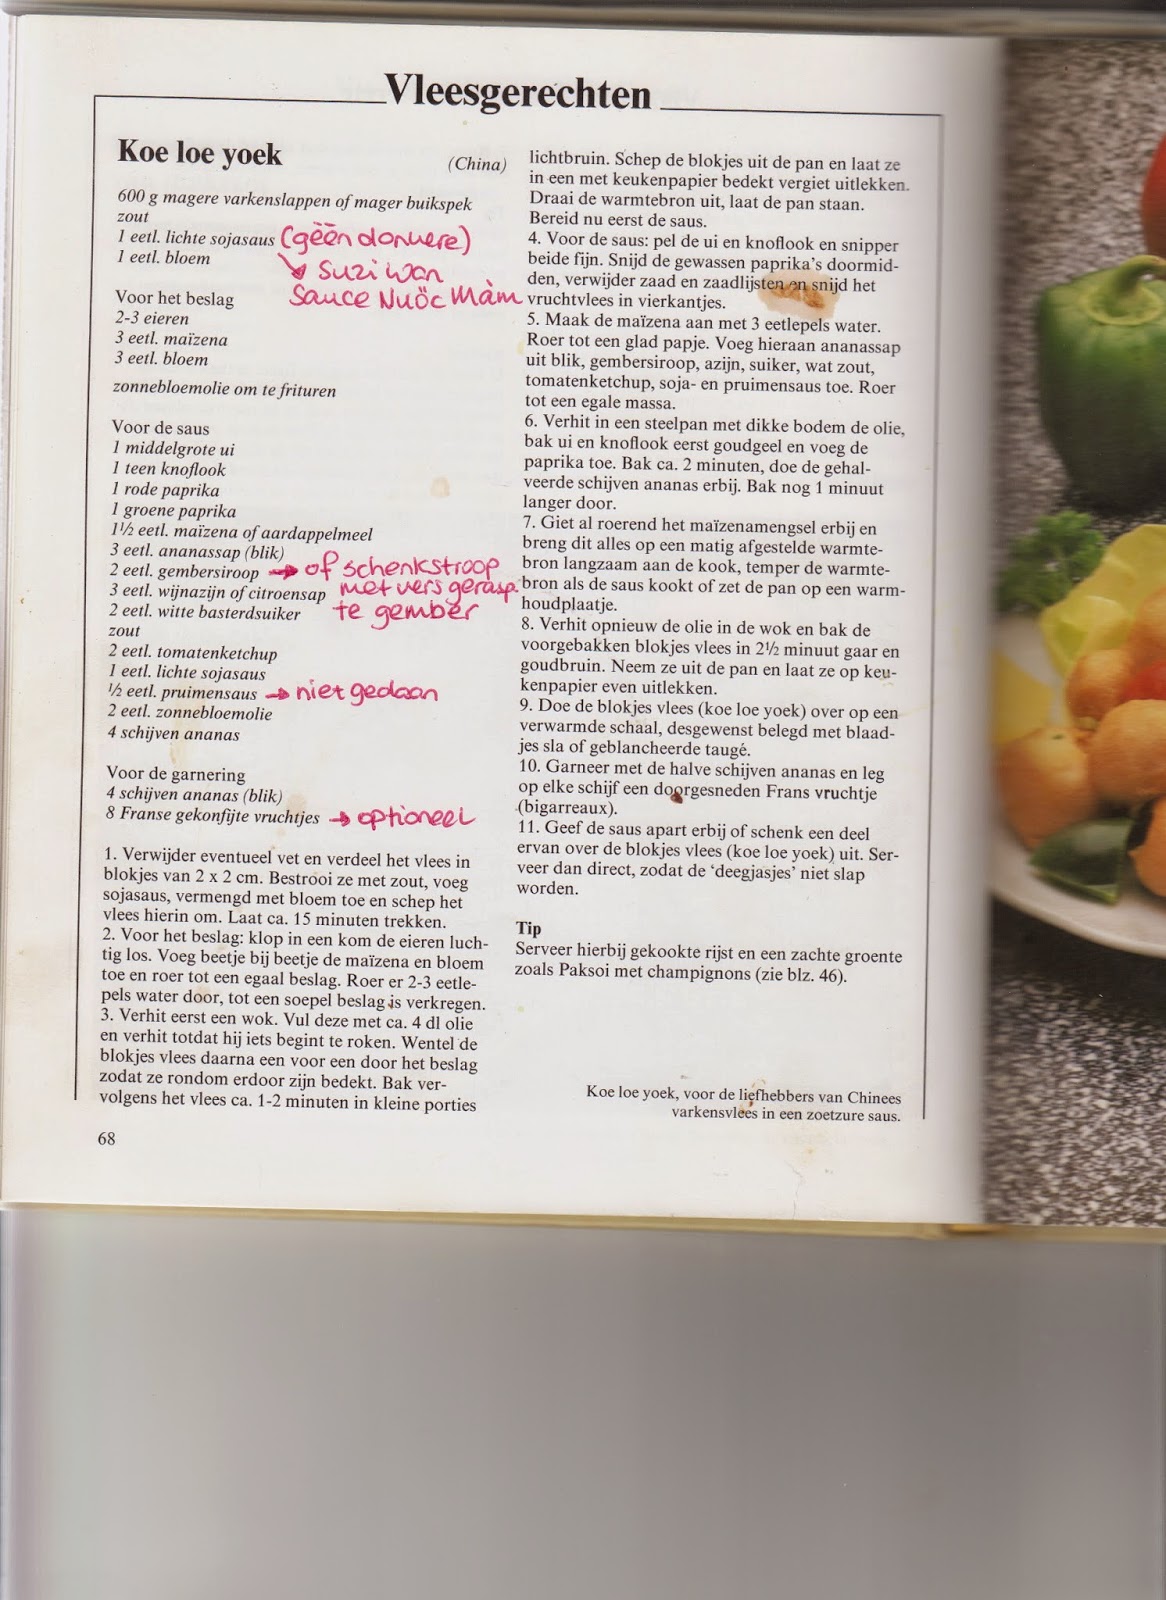 Vleesgerechten
Koe loe yoek
(China)
600 g magere varkenslappen of mager buikspek
zout
1 eetl. lichte sojasaus (géén donkere)
1 eetl. bloem
↘ Suzi Wan
Sauce Nuöc Màm
Voor het beslag
2-3 eieren
3 eetl. maïzena
3 eetl. bloem
zonnebloemolie om te frituren
Voor de saus
1 middelgrote ui
1 teen knoflook
1 rode paprika
1 groene paprika
1½ eetl. maïzena of aardappelmeel
3 eetl. ananassap (blik)
2 eetl. gembersiroop → of schenkstroop
3 eetl. wijnazijn of citroensap met vers gerasp-
2 eetl. witte basterdsuiker te gember
zout
2 eetl. tomatenketchup
1 eetl. lichte sojasaus
½ eetl. pruimensaus → niet gedaan
2 eetl. zonnebloemolie
4 schijven ananas
Voor de garnering
4 schijven ananas (blik)
8 Franse gekonfijte vruchtjes → optioneel
1. Verwijder eventueel vet en verdeel het vlees in
blokjes van 2 x 2 cm. Bestrooi ze met zout, voeg
sojasaus, vermengd met bloem toe en schep het
vlees hierin om. Laat ca. 15 minuten trekken.
2. Voor het beslag: klop in een kom de eieren luch-
tig los. Voeg beetje bij beetje de maïzena en bloem
toe en roer tot een egaal beslag. Roer er 2-3 eetle-
pels water door, tot een soepel beslag is verkregen.
3. Verhit eerst een wok. Vul deze met ca. 4 dl olie
en verhit totdat hij iets begint te roken. Wentel de
blokjes vlees daarna een voor een door het beslag
zodat ze rondom erdoor zijn bedekt. Bak ver-
volgens het vlees ca. 1-2 minuten in kleine porties
lichtbruin. Schep de blokjes uit de pan en laat ze
in een met keukenpapier bedekt vergiet uitlekken.
Draai de warmtebron uit, laat de pan staan.
Bereid nu eerst de saus.
4. Voor de saus: pel de ui en knoflook en snipper
beide fijn. Snijd de gewassen paprika's doormid-
den, verwijder zaad en zaadlijsten en snijd het
vruchtvlees in vierkantjes.
5. Maak de maïzena aan met 3 eetlepels water.
Roer tot een glad papje. Voeg hieraan ananassap
uit blik, gembersiroop, azijn, suiker, wat zout,
tomatenketchup, soja- en pruimensaus toe. Roer
tot een egale massa.
6. Verhit in een steelpan met dikke bodem de olie,
bak ui en knoflook eerst goudgeel en voeg de
paprika toe. Bak ca. 2 minuten, doe de gehal-
veerde schijven ananas erbij. Bak nog 1 minuut
langer door.
7. Giet al roerend het maïzenamengsel erbij en
breng dit alles op een matig afgestelde warmte-
bron langzaam aan de kook, temper de warmte-
bron als de saus kookt of zet de pan op een warm-
houdplaatje.
8. Verhit opnieuw de olie in de wok en bak de
voorgebakken blokjes vlees in 2½ minuut gaar en
goudbruin. Neem ze uit de pan en laat ze op keu-
kenpapier even uitlekken.
9. Doe de blokjes vlees (koe loe yoek) over op een
verwarmde schaal, desgewenst belegd met blaad-
jes sla of geblancheerde taugé.
10. Garneer met de halve schijven ananas en leg
op elke schijf een doorgesneden Frans vruchtje
(bigarreaux).
11. Geef de saus apart erbij of schenk een deel
ervan over de blokjes vlees (koe loe yoek) uit. Ser-
veer dan direct, zodat de 'deegjasjes' niet slap
worden.
Tip
Serveer hierbij gekookte rijst en een zachte groente
zoals Paksoi met champignons (zie blz. 46).
Koe loe yoek, voor de liefhebbers van Chinees
varkensvlees in een zoetzure saus.
68